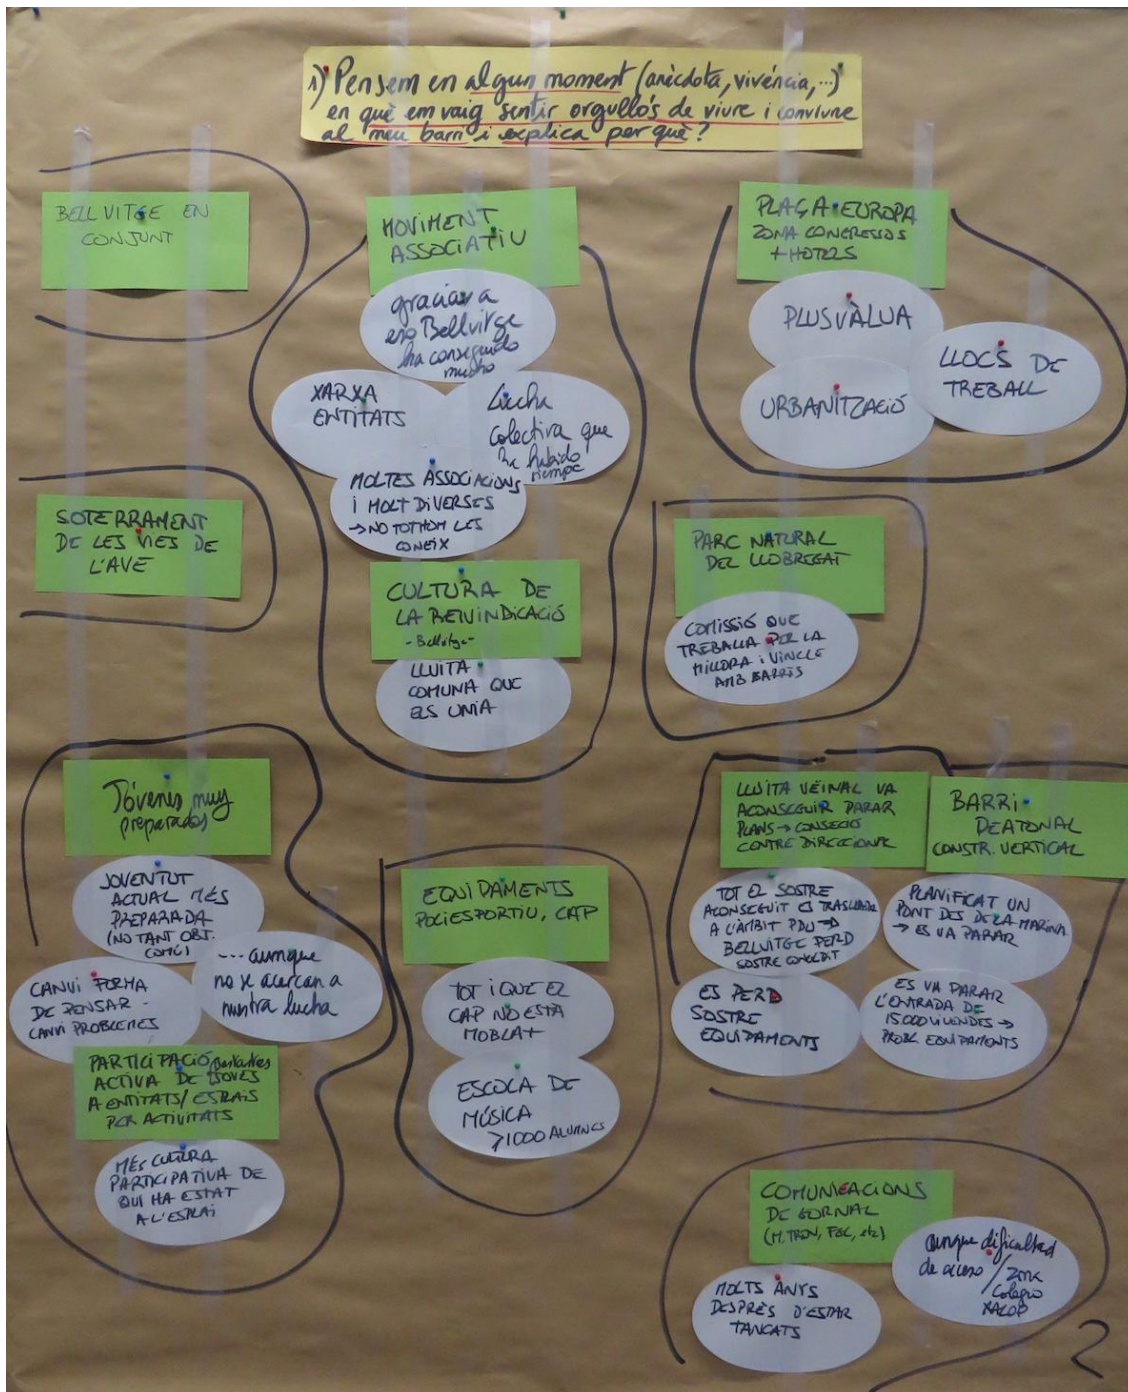 1) Pensem en algun moment (anècdota, vivència,...)
en què em vaig sentir orgullós de viure i conviure
al meu barri i explica per què?
BELLVITGE EN
CONJUNT
MOVIMENT
ASSOCIATIU
gracias a
eso Bellvitge
ha conseguido
mucho
XARXA
ENTITATS
Lucha
colectiva que
ha habido
siempre
MOLTES ASSOCIACIONS
I MOLT DIVERSES
→ NO TOTHOM LES
CONEIX
CULTURA DE
LA REIVINDICACIÓ
- Bellvitge -
LLUITA
COMUNA QUE
ELS UNIA
PLAÇA EUROPA
ZONA CONGRESSOS
+ HOTELS
PLUSVÀLUA
URBANITZACIÓ
LLOCS DE
TREBALL
SOTERRAMENT
DE LES VIES DE
L'AVE
PARC NATURAL
DEL LLOBREGAT
COMISSIÓ QUE
TREBALLA PER LA
MILLORA I VINCLE
AMB BARRIS
Jóvenes muy
preparados
JOVENTUT
ACTUAL MÉS
PREPARADA
(NO TANT OBJ.
COMÚ)
... aunque
no se acercan a
nuestra lucha
CANVI FORMA
DE PENSAR -
CANVI PROBLEMES
PARTICIPACIÓ
ACTIVA DE JOVES
A ENTITATS/ESPLAIS
PER ACTIVITATS
MÉS CULTURA
PARTICIPATIVA DE
QUI HA ESTAT
A L'ESPLAI
EQUIPAMENTS
POLIESPORTIU, CAP
TOT I QUE EL
CAP NO ESTÀ
MOBLAT
ESCOLA DE
MÚSICA
>1000 ALUMNES
LLUITA VEÏNAL VA
ACONSEGUIR PARAR
PLANS →
CONTRE DIRECCIONAL
BARRI
CONSTR. VERTICAL
TOT EL SOSTRE
ACONSEGUIT ES TRASLLADA
A L'ÀMBIT PDU →
BELLVITGE PERD
SOSTRE
ES PERD
SOSTRE
EQUIPAMENTS
PLANIFICAT UN
PONT DES DE LA MARINA
→ ES VA PARAR
ES VA PARAR
L'ENTRADA DE
15000 VIVENDES →
PROBL EQUIPAMENTS
COMUNICACIONS
DE GORNAL
(M, TREN, FGC, etc)
MOLTS ANYS
DESPRÉS D'ESTAR
TANCATS
aunque dificultad
de acceso / zona
Colegio
XALOC
2